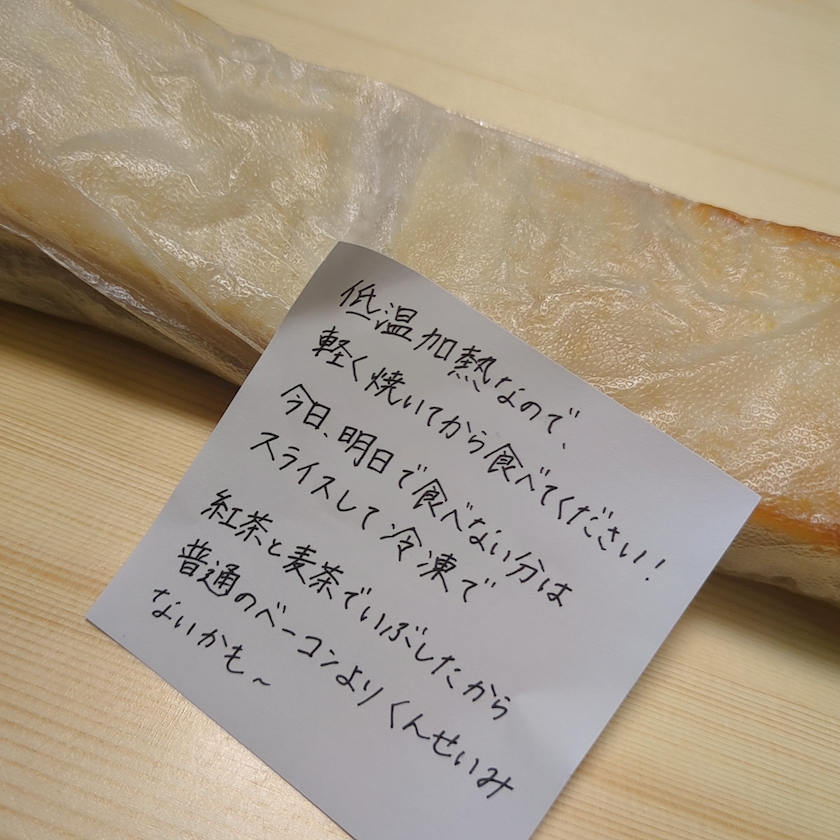 低温加熱なので、
軽く焼いてから食べてください!
今日、明日で食べない分は
スライスして冷凍で
紅茶と麦茶でいぶしたから
普通のベーコンよりくんせいみ
ないかも~